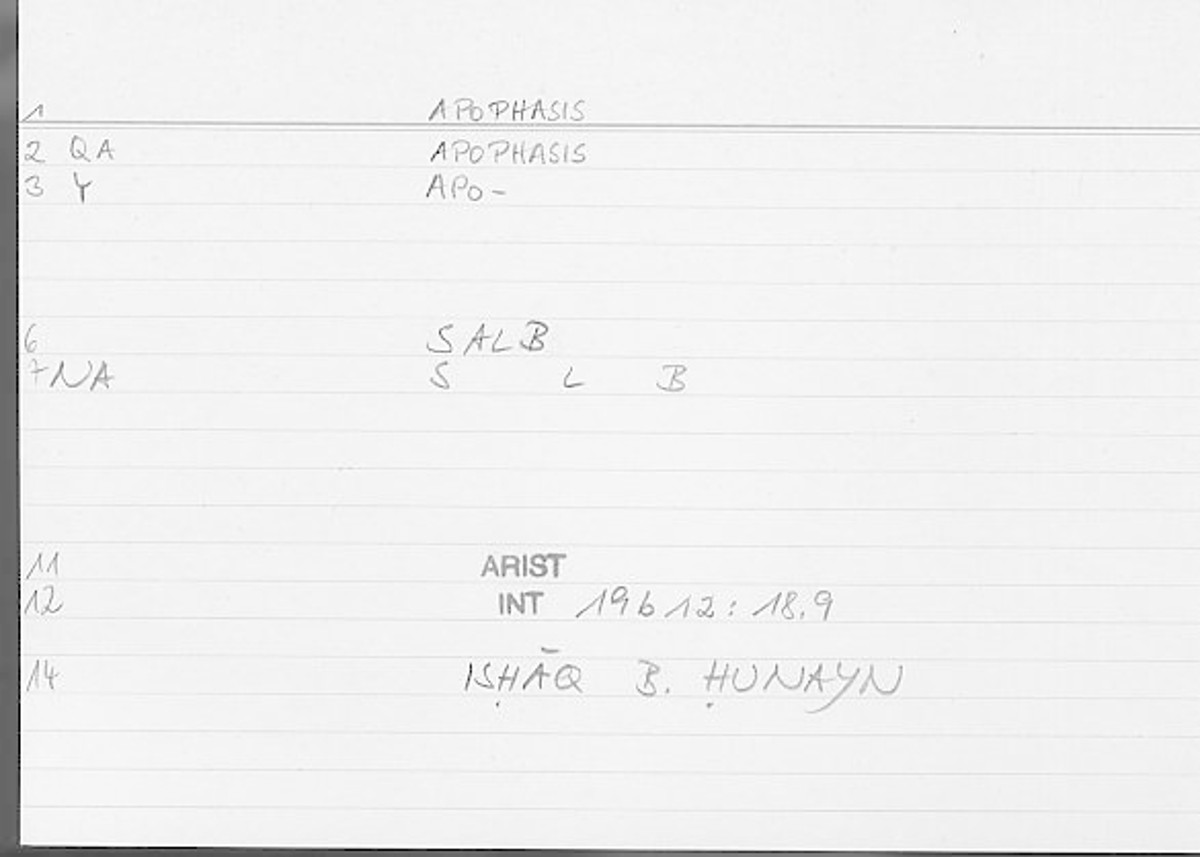 1 APOPHASIS
2 QA APOPHASIS
3 Y APO-
6 SALB
7 NA S L B
11 ARIST
12 INT 19b12: 18.9
14 ISḤĀQ B. ḤUNAYN